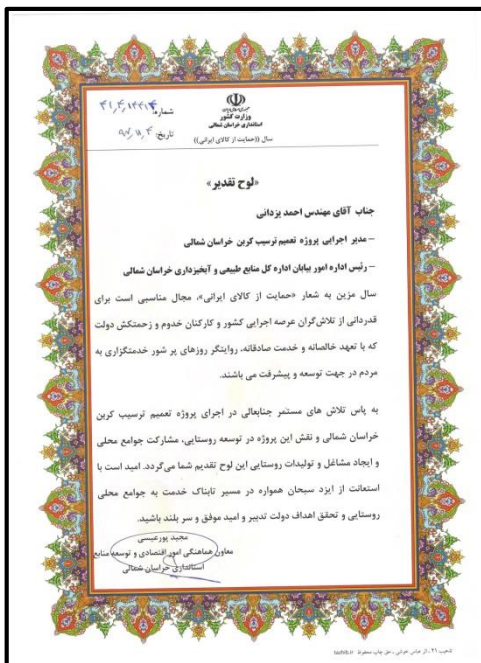 شماره: ۴۱٫۴٫۱۴۴۱۴
تاریخ: ۹۷٫۱۱٫۴
وزارت کشور
استانداری خراسان شمالی
سال ((حمایت از کالای ایرانی))
«لوح تقدیر»
جناب آقای مهندس احمد یزدانی
– مدیر اجرایی پروژه تعمیم ترسیب کربن خراسان شمالی
– رئیس اداره امور بیابان اداره کل منابع طبیعی و آبخیزداری خراسان شمالی
سال مزین به شعار «حمایت از کالای ایرانی»، مجال مناسبی است برای
قدردانی از تلاش‌گران عرصه اجرایی کشور و کارکنان خدوم و زحمتکش دولت
که با تعهد خالصانه و خدمت صادقانه، روایتگر روزهای پر شور خدمتگزاری به
مردم در جهت توسعه و پیشرفت می باشند.
به پاس تلاش های مستمر جنابعالی در اجرای پروژه تعمیم ترسیب کربن
خراسان شمالی و نقش این پروژه در توسعه روستایی، مشارکت جوامع محلی
و ایجاد مشاغل و تولیدات روستایی این لوح تقدیم شما می‌گردد. امید است با
استعانت از ایزد سبحان همواره در مسیر تابناک خدمت به جوامع محلی
روستایی و تحقق اهداف دولت تدبیر و امید موفق و سر بلند باشید.
مجید پورعیسی
معاون هماهنگی امور اقتصادی و توسعه منابع
استانداری خراسان شمالی
تذهیب ۲۱ ـ اثر عباس خوشی ـ حق چاپ محفوظ tazhib.ir